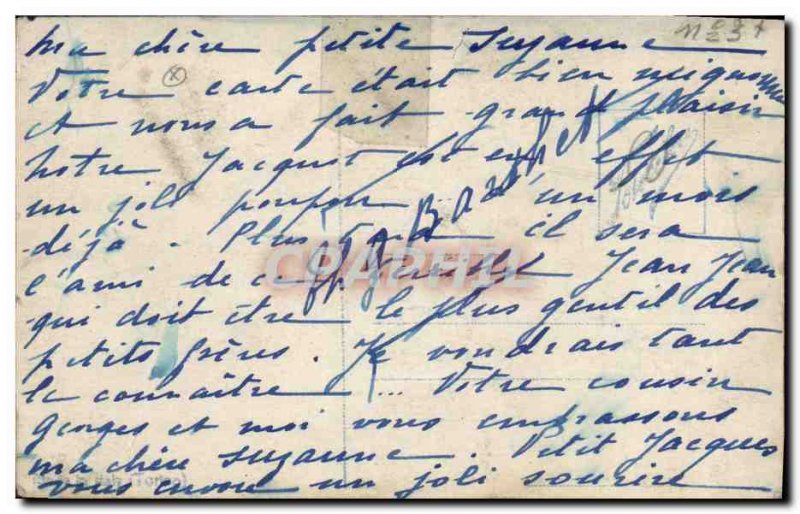 Ma chère petite Suzanne
Votre carte était bien mignonne
et nous a fait grand plaisir
Notre Jacquot est en effet
un joli poupon un mois
déjà. Plus tard il sera
l'ami de Jean Jean
qui doit être le plus gentil des
petits frères. Je voudrais tant
le connaître... Votre cousin
Georges et moi vous embrassons
ma chère Suzanne. Petit Jacques
vous envoie un joli sourire
G Barthet
CPAPHIL